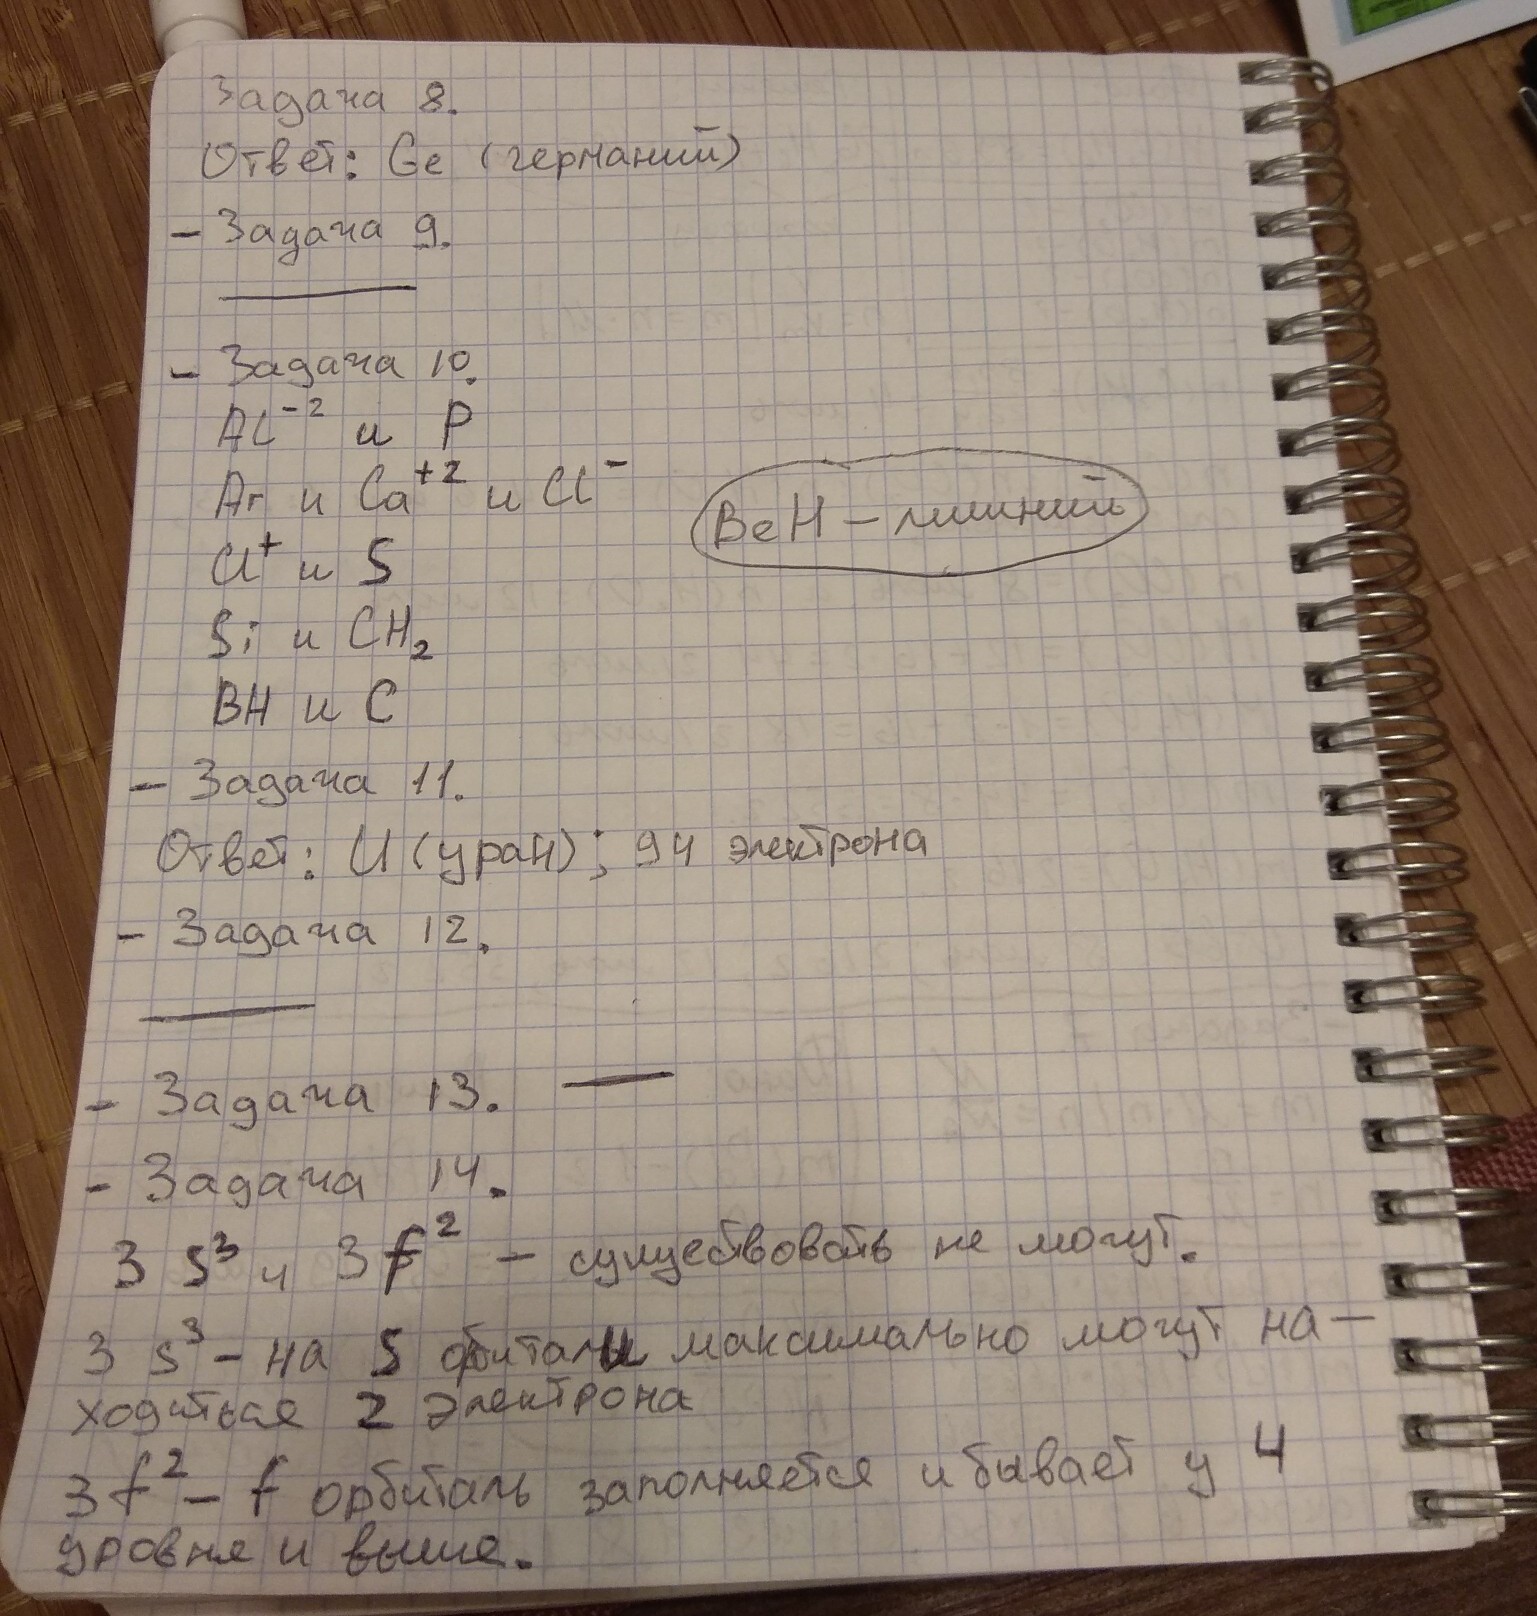 Задача 8.
Ответ: Ge (германий)
- Задача 9.
- Задача 10.
Al⁻² и P
Ar и Ca⁺² и Cl⁻
BeH – лишний
Cl⁺ и S
Si и CH₂
BH и C
- Задача 11.
Ответ: U (уран); 94 электрона
- Задача 12.
- Задача 13. —
- Задача 14.
3 s³ и 3f² – существовать не могут.
3 s³ – на s орбитали максимально могут на-
ходиться 2 электрона
3f² – f орбиталь заполняется и бывает у 4
уровня и выше.